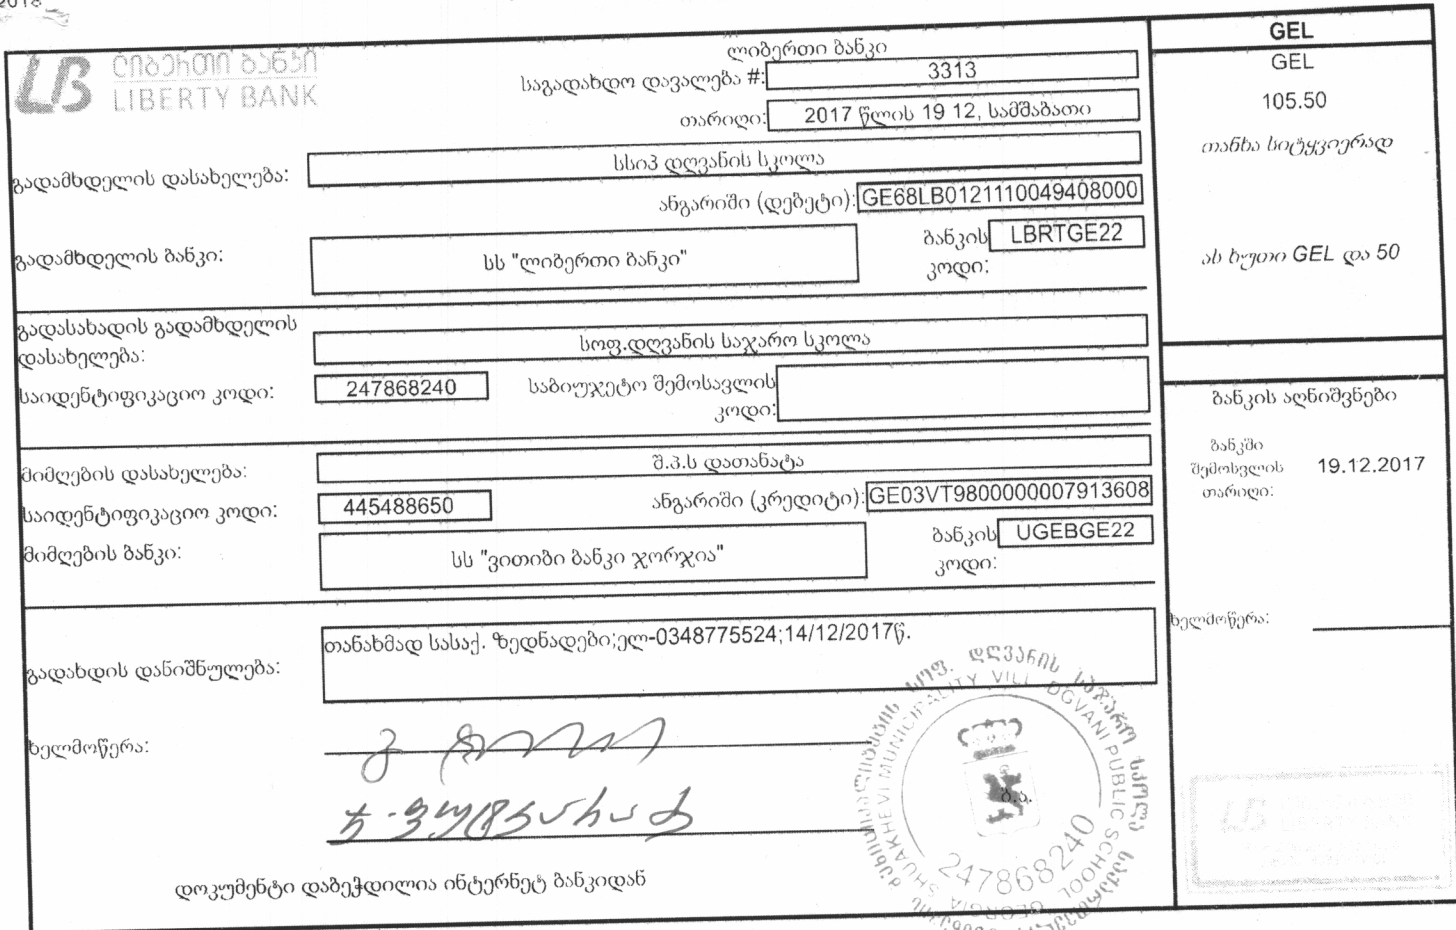 ლიბერთი ბანკი
LIBERTY BANK
ლიბერთი ბანკი
საგადახდო დავალება #: 3313
თარიღი: 2017 წლის 19 12, სამშაბათი
გადამხდელის დასახელება: სსიპ დღვანის სკოლა
ანგარიში (დებეტი): GE68LB0121110049408000
გადამხდელის ბანკი: სს "ლიბერთი ბანკი"
ბანკის კოდი: LBRTGE22
გადასახადის გადამხდელის
დასახელება: სოფ.დღვანის საჯარო სკოლა
საიდენტიფიკაციო კოდი: 247868240
საბიუჯეტო შემოსავლის
კოდი:
მიმღების დასახელება: შ.პ.ს დათანატა
საიდენტიფიკაციო კოდი: 445488650
ანგარიში (კრედიტი): GE03VT9800000007913608
მიმღების ბანკი: სს "ვითიბი ბანკი ჯორჯია"
ბანკის კოდი: UGEBGE22
გადახდის დანიშნულება: თანახმად სასაქ. ზედნადები;ელ-0348775524;14/12/2017წ.
ხელმოწერა:
დოკუმენტი დაბეჭდილია ინტერნეტ ბანკიდან
GEL
GEL
105.50
თანხა სიტყვიერად
ას ხუთი GEL და 50
ბანკის აღნიშვნები
ბანკში
შემოსვლის
თარიღი: 19.12.2017
ხელმოწერა:
სოფ. დღვანის საჯარო სკოლა
SHUAKHEVI MUNICIPALITY VILL. DGVANI PUBLIC SCHOOL GEORGIA
247868240
ბ.ა.